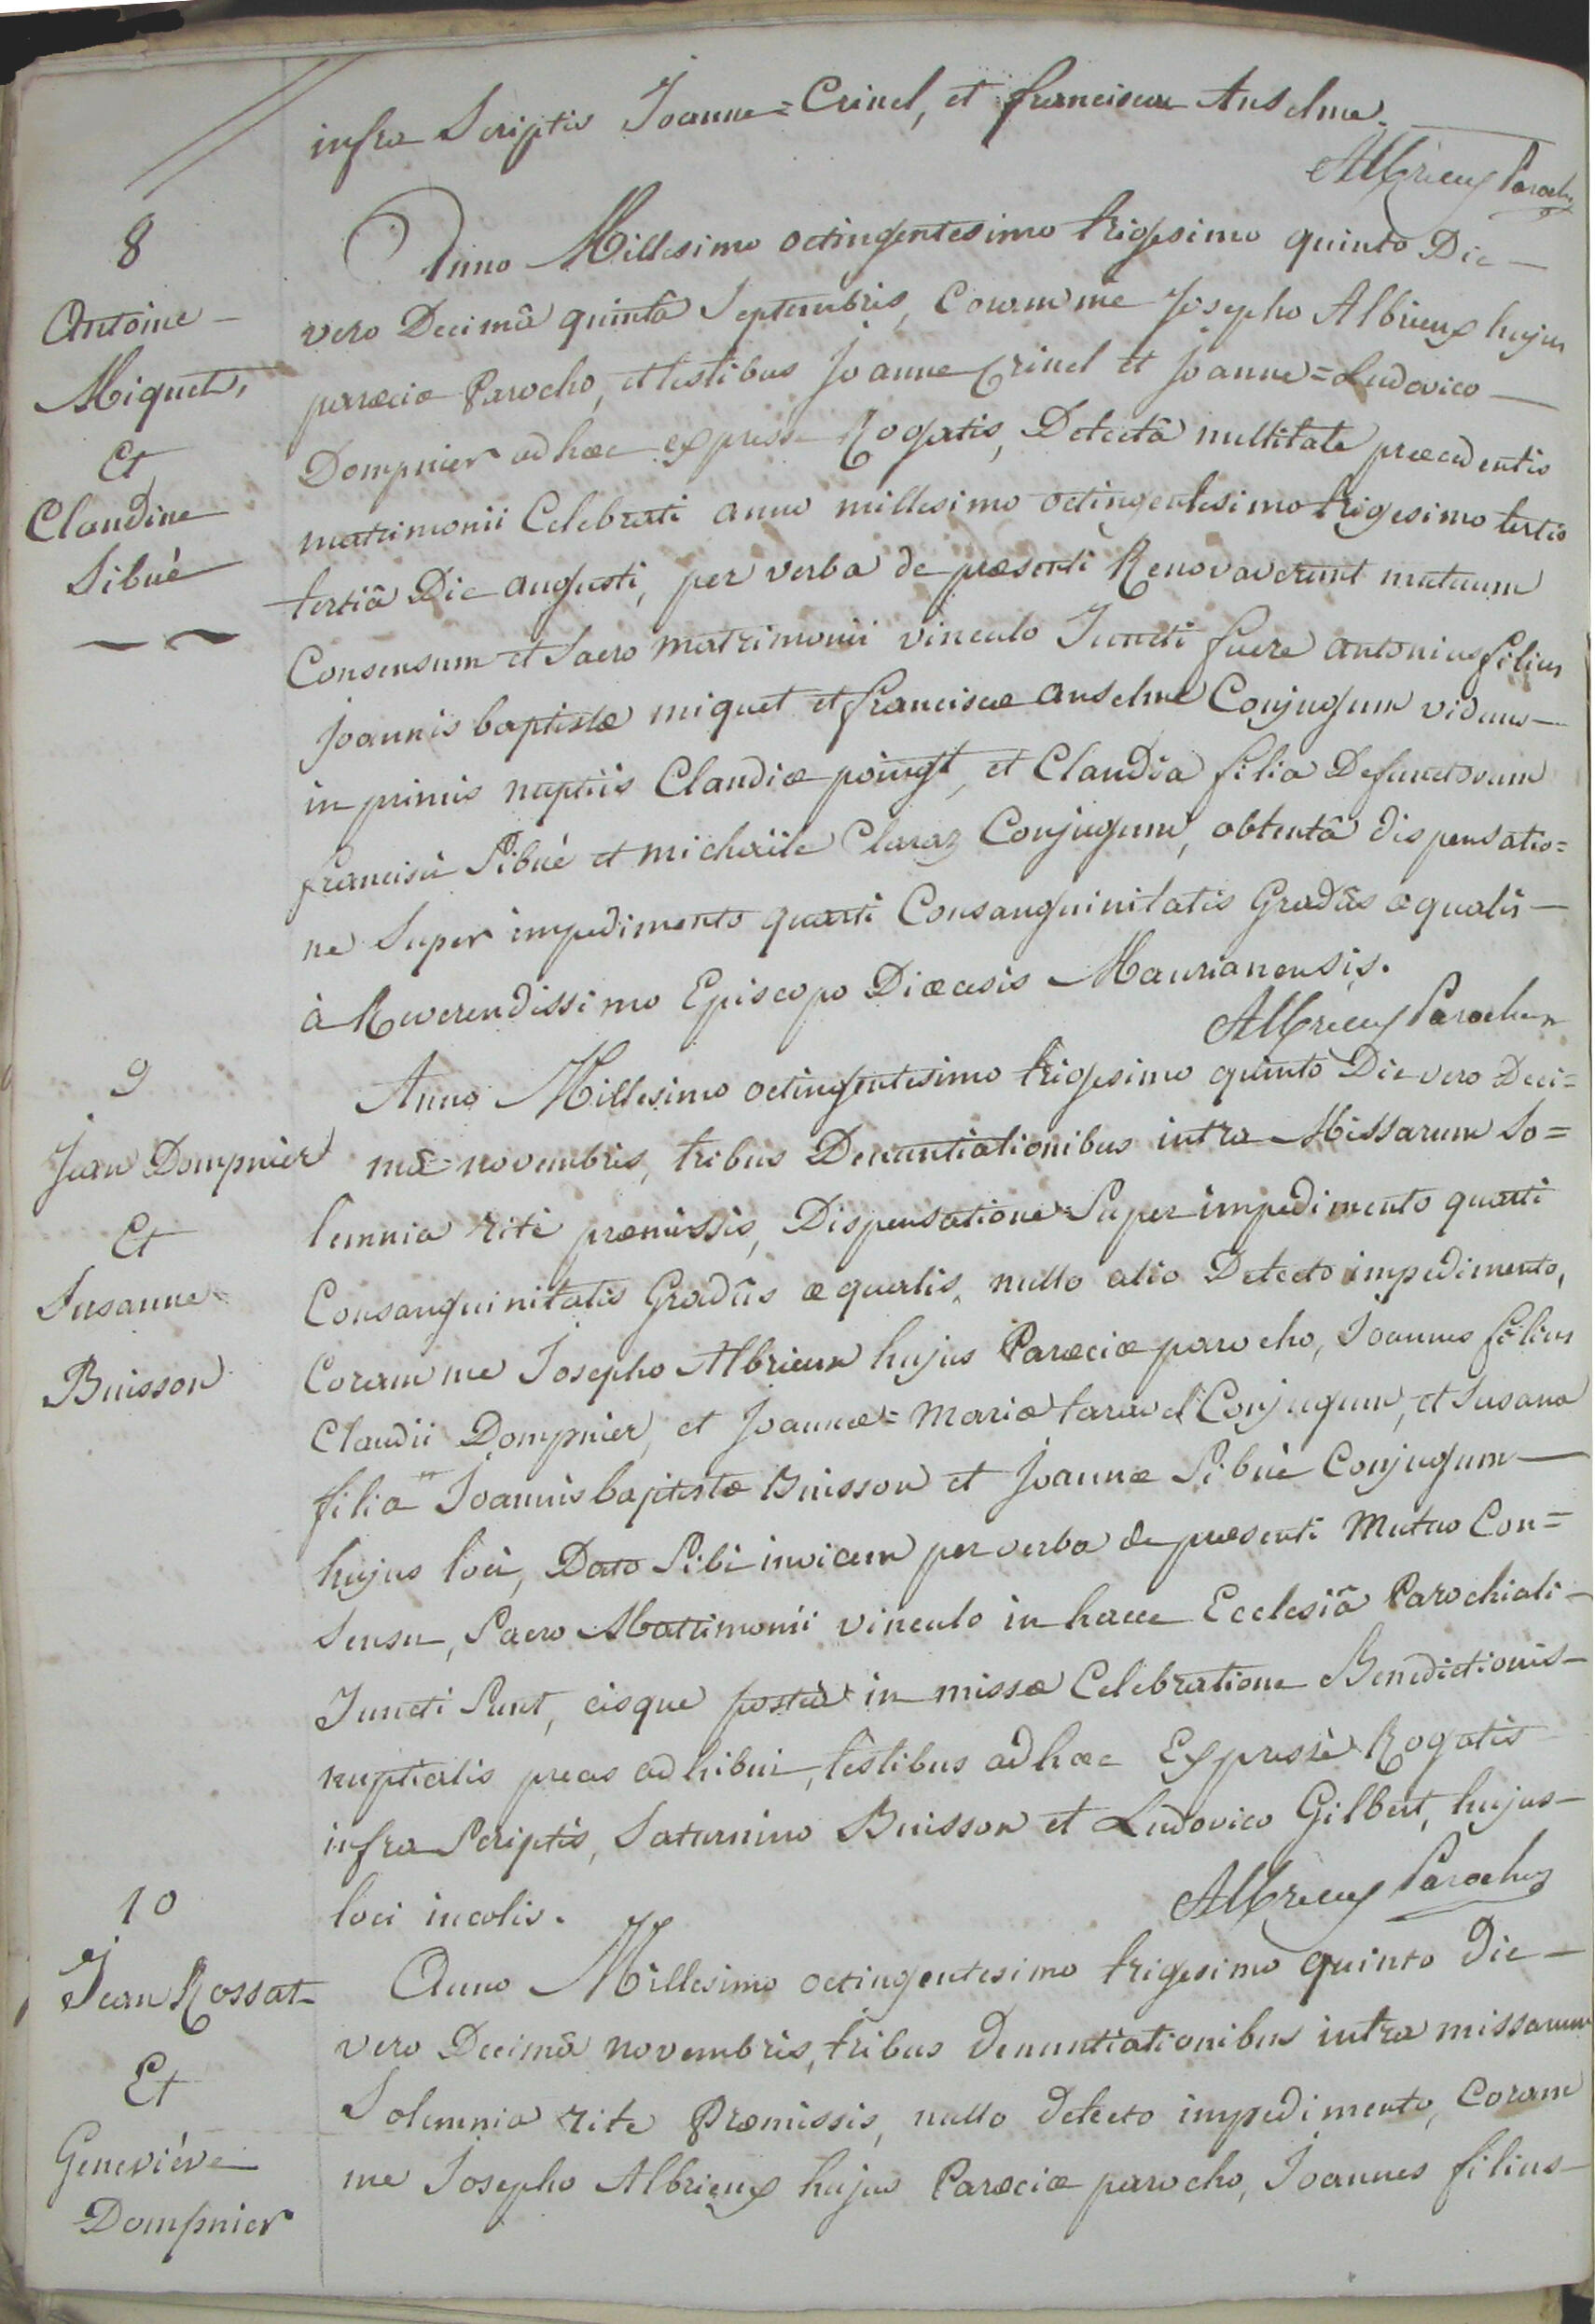 infra Scriptis Joanne=Crinel, et francisco Anselme.
Albrieux Parochus
8
Antoine
Miquet,
Et
Claudine
Sibué
Anno Millesimo octingentesimo trigesimo quinto Die
vero Decimâ quintâ Septembris, Coram me Josepho Albrieux hujus
parœciæ Parocho, et testibus Joanne Crinel et Joanne=Ludovico
Dompnier ad hæc expresse Rogatis, Detectâ nullitate præcedentis
matrimonii Celebrati anno millesimo octingentesimo trigesimo tertio
tertiâ Die augusti, per verba de præsenti Renovaverunt mutuum
Consensum et Sacro matrimonii vinculo Juncti fuere antonius filius
joannis baptistæ miquet et franciscæ anselme Conjugum viduus
in primis nuptiis Claudiæ poingt, et Claudia filia Defunctorum
francisci Sibué et michaële Claraz Conjugum, obtentâ dispensatio=
ne Super impedimento quarti Consanguinitatis Gradûs æqualis
à Reverendissimo Episcopo Diœcesis Maurianensis.
Albrieux Parochus
9
Jean Dompnier
Et
Susanne
Buisson
Anno Millesimo octingentesimo trigesimo quinto Die vero Deci=
mâ novembris, tribus Denuntiationibus intra Missarum So=
lemnia ritè præmissis, Dispensatione Super impedimento quarti
Consanguinitatis Gradûs æqualis, nullo alio Detecto impedimento,
Coram me Josepho Albrieux hujus Parœciæ parocho, Joannes filius
Claudii Dompnier, et Joannæ=Mariæ taravel Conjugum, et Susana
filia Joannis baptistæ Buisson et Joannæ Sibué Conjugum
hujus loci, Dato Sibi invicem per verba de præsenti Mutuo Con=
sensu, Sacro Matrimonii vinculo in hacce Ecclesiâ Parochiali
Juncti Sunt, eisque posteà in missæ Celebratione Benedictionis
nuptialis preces adhibui, testibus ad hæc Expressè Rogatis
infra Scriptis, Saturnino Buisson et Ludovico Gilbert, hujus
loci incolis.
Albrieux Parochus
10
Jean Rossat
Et
Geneviève
Dompnier
Anno Millesimo octingentesimo trigesimo quinto Die
vero Decimâ novembris, tribus denuntiationibus intra missarum
Solemnia rite Præmissis, nullo detecto impedimento, Coram
me Josepho Albrieux hujus Parœciæ parocho, Joannes filius